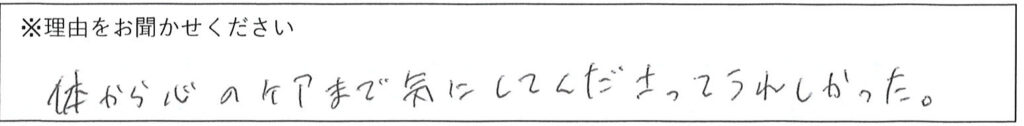 ※理由をお聞かせください
体から心のケアまで気にしてくださってうれしかった。